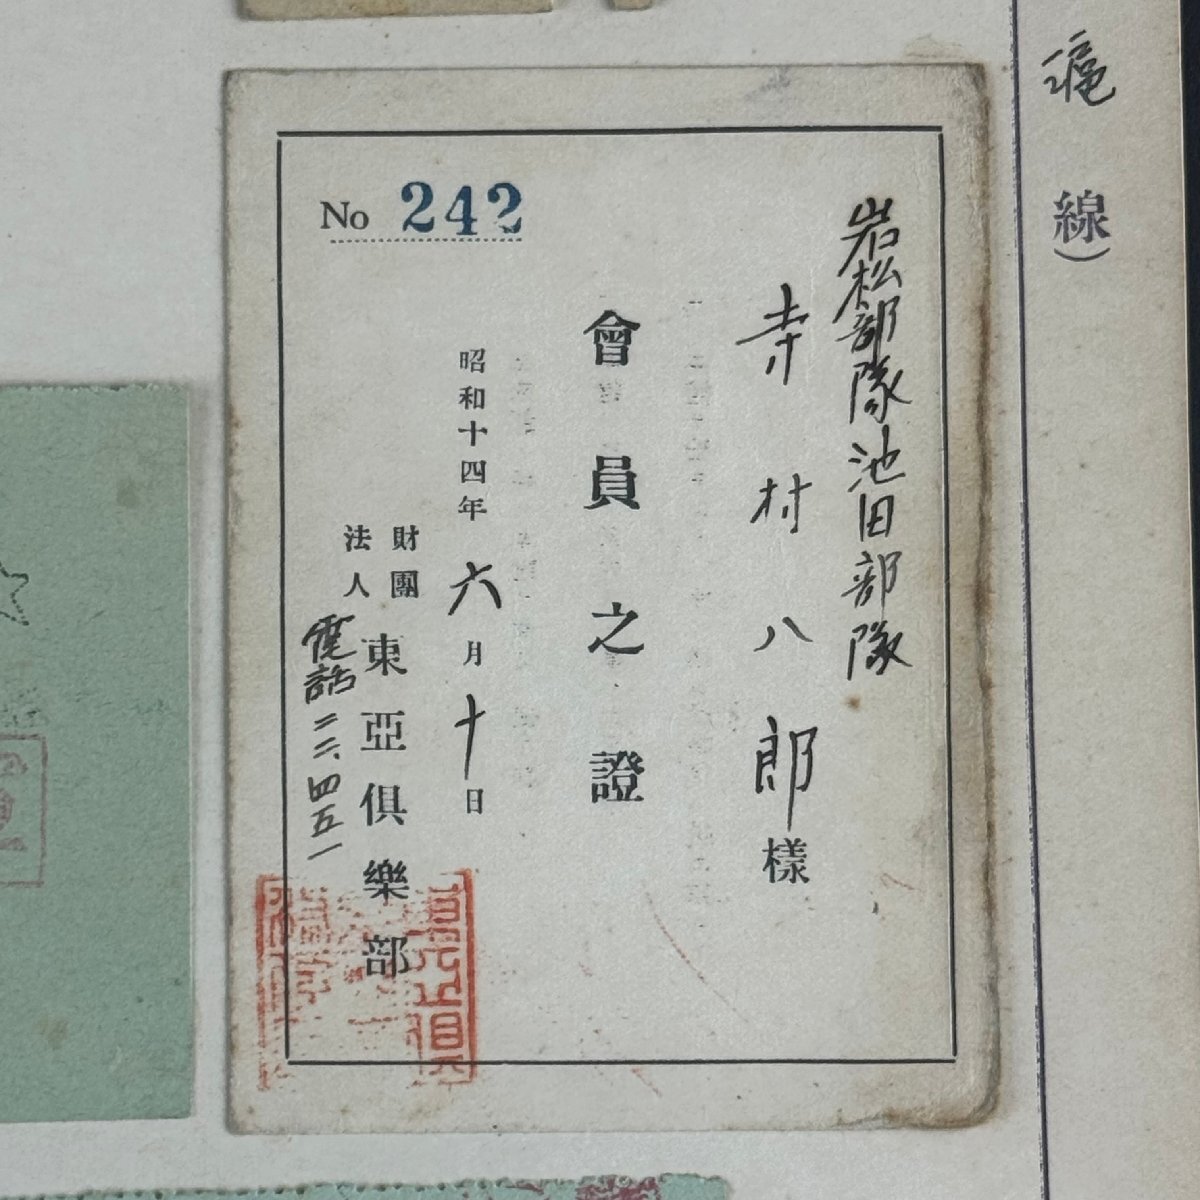 滬線)
No 242
岩松部隊池田部隊
寺村八郎様
會員之證
昭和十四年六月十日
財團法人東亞俱樂部
電話二二、四五一